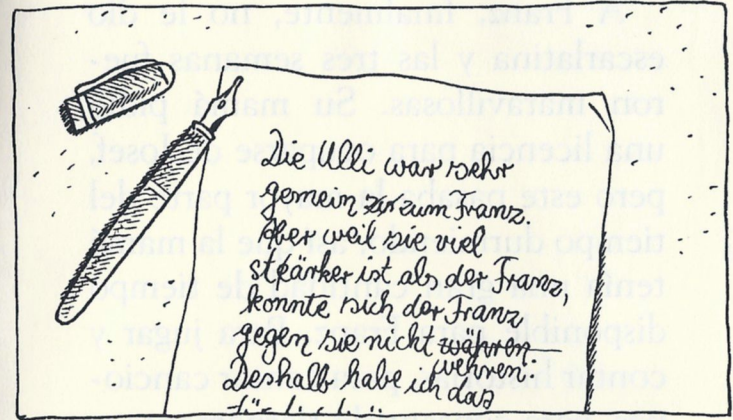 Die Ulli war sehr
gemein zum Franz.
Aber weil sie viel
stärker ist als der Franz,
konnte sich der Franz
gegen sie nicht währen
wehren.
Deshalb habe ich das